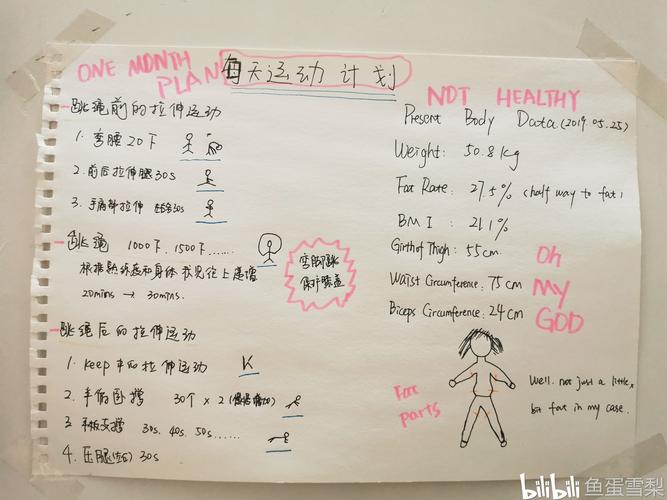 ONE MONTH
PLAN
每天运动计划
跳绳前的拉伸运动
1. 弯腰20下
2. 前后拉伸腿30s
3. 手臂拉伸 30s
跳绳 1000下. 1500下......
根据熟练度和身体状况往上递增
20mins → 30mins.
弯脚跳
保护膝盖
跳绳后的拉伸运动
1. keep中的拉伸运动
2. 半俯卧撑 30个 × 2 (慢慢增加)
3 平板支撑 30s. 40s. 50s......
4. 压腿 30s
NOT HEALTHY
Present Body Data (2019.05.25)
Weight: 50.8kg
Fat Rate: 27.5% (half way to fat)
BMI: 21.1%
Girth of Thigh: 55cm
Waist Circumference: 75cm
Biceps Circumference: 24cm
Oh
My
GOD
Fat
parts
Well. not just a little
bit fat in my case.
bilibili 鱼蛋雪梨